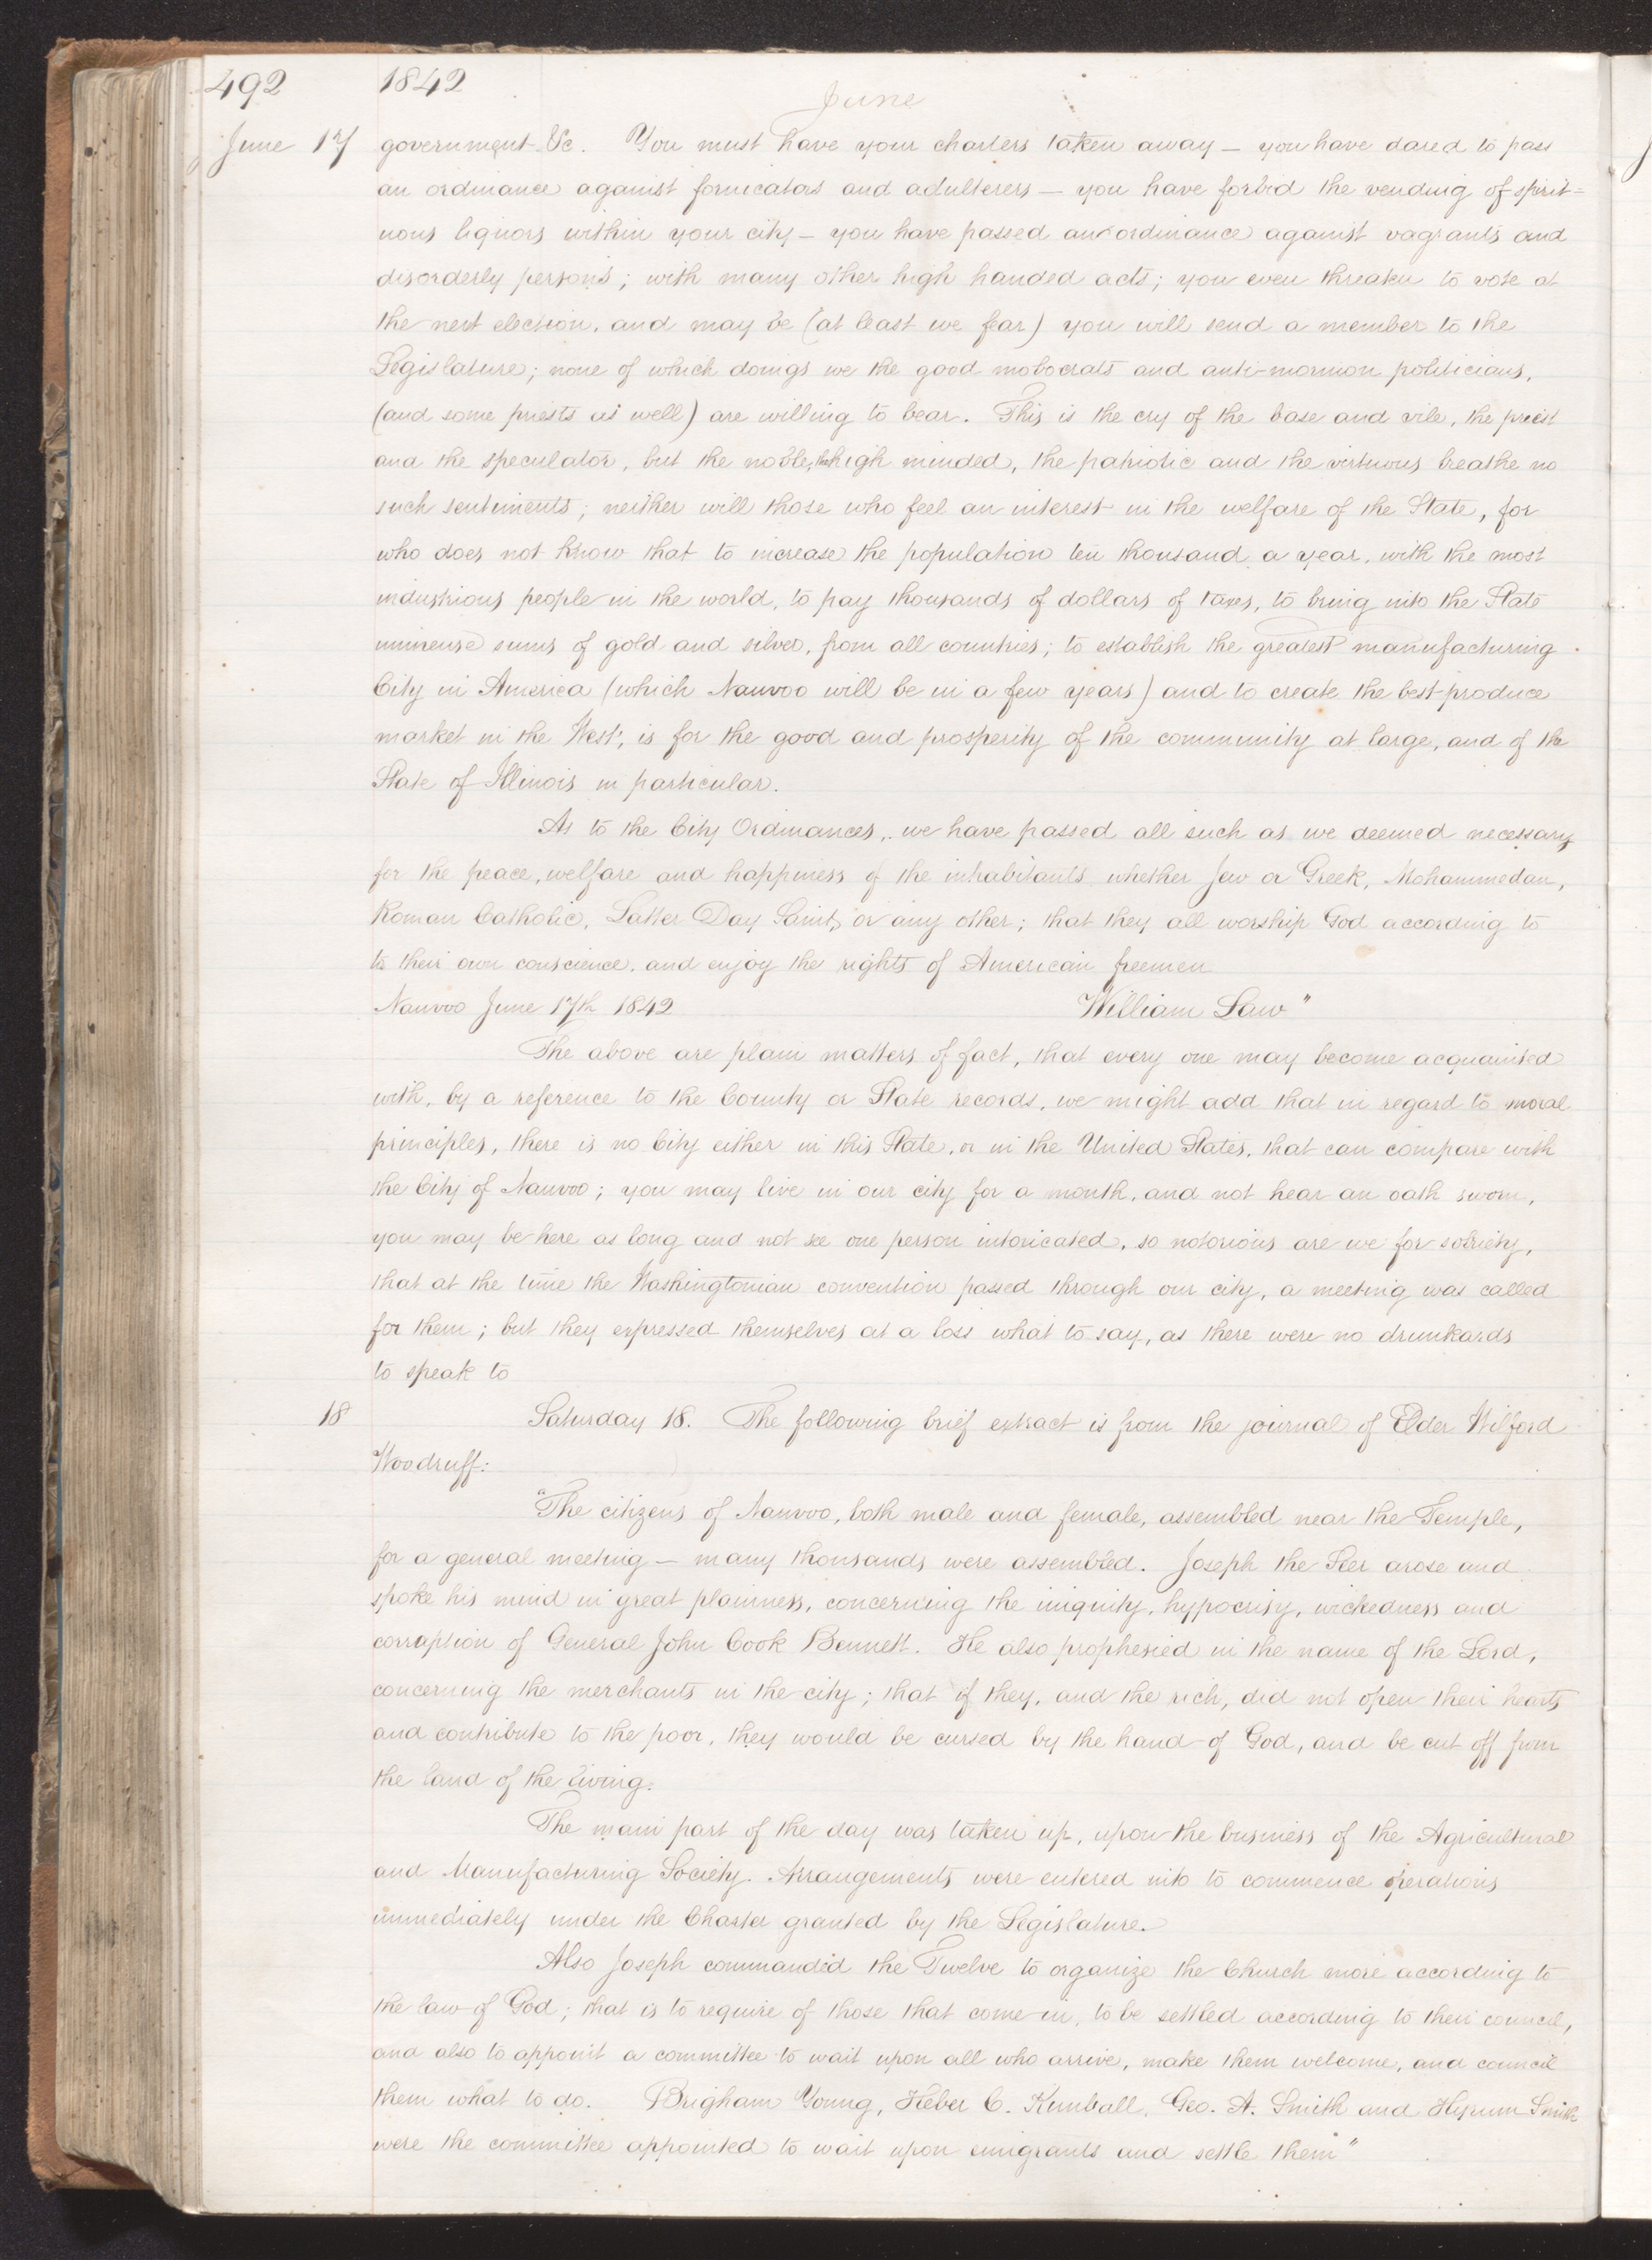 492 1842
June
June 17 government &c. You must have your charters taken away — you have dared to pass
an ordinance against fornicators and adulterers — you have forbid the vending of spirit=
uous liquors within your city — you have passed an ordinance against vagrants and
disorderly persons; with many other high handed acts; you even threaten to vote at
the next election, and may be (at least we fear) you will send a member to the
Legislature; none of which doings we the good mobocrats and anti-mormon politicians,
(and some priests as well) are willing to bear. This is the cry of the base and vile, the priest
and the speculator, but the noble, the high minded, the patriotic and the virtuous breathe no
such sentiments; neither will those who feel an interest in the welfare of the State, for
who does not know that to increase the population ten thousand a year, with the most
industrious people in the world, to pay thousands of dollars of taxes, to bring into the State
immense sums of gold and silver, from all countries; to establish the greatest manufacturing
City in America (which Nauvoo will be in a few years) and to create the best produce
market in the West, is for the good and prosperity of the community at large, and of the
State of Illinois in particular.
As to the City Ordinances, we have passed all such as we deemed necessary
for the peace, welfare and happiness of the inhabitants, whether Jew or Greek, Mohammedan,
Roman Catholic, Latter Day Saint, or any other; that they all worship God according to
to their own conscience, and enjoy the rights of American freemen
Nauvoo June 17th 1842 William Law"
The above are plain matters of fact, that every one may become acquainted
with, by a reference to the County or State records, we might add that in regard to moral
principles, there is no City either in this State, or in the United States, that can compare with
the City of Nauvoo; you may live in our city for a month, and not hear an oath sworn,
you may be here as long and not see one person intoxicated, so notorious are we for sobriety,
that at the time the Washingtonian convention passed through our city, a meeting was called
for them; but they expressed themselves at a loss what to say, as there were no drunkards
to speak to
18 Saturday 18. The following brief extract is from the journal of Elder Wilford
Woodruff:
"The citizens of Nauvoo, both male and female, assembled near the Temple,
for a general meeting — many thousands were assembled. Joseph the Seer arose and
spoke his mind in great plainness, concerning the iniquity, hypocrisy, wickedness and
corruption of General John Cook Bennett. He also prophesied in the name of the Lord,
concerning the merchants in the city; that if they, and the rich, did not open their hearts
and contribute to the poor, they would be cursed by the hand of God, and be cut off from
the land of the living.
The main part of the day was taken up, upon the business of the Agricultural
and Manufacturing Society. Arrangements were entered into to commence operations
immediately under the Charter granted by the Legislature.
Also Joseph commanded the Twelve to organize the Church more according to
the law of God; that is to require of those that come in, to be settled according to their council,
and also to appoint a committee to wait upon all who arrive, make them welcome, and council
them what to do. Brigham Young, Heber C. Kimball, Geo. A. Smith and Hyrum Smith
were the committee appointed to wait upon emigrants and settle them"